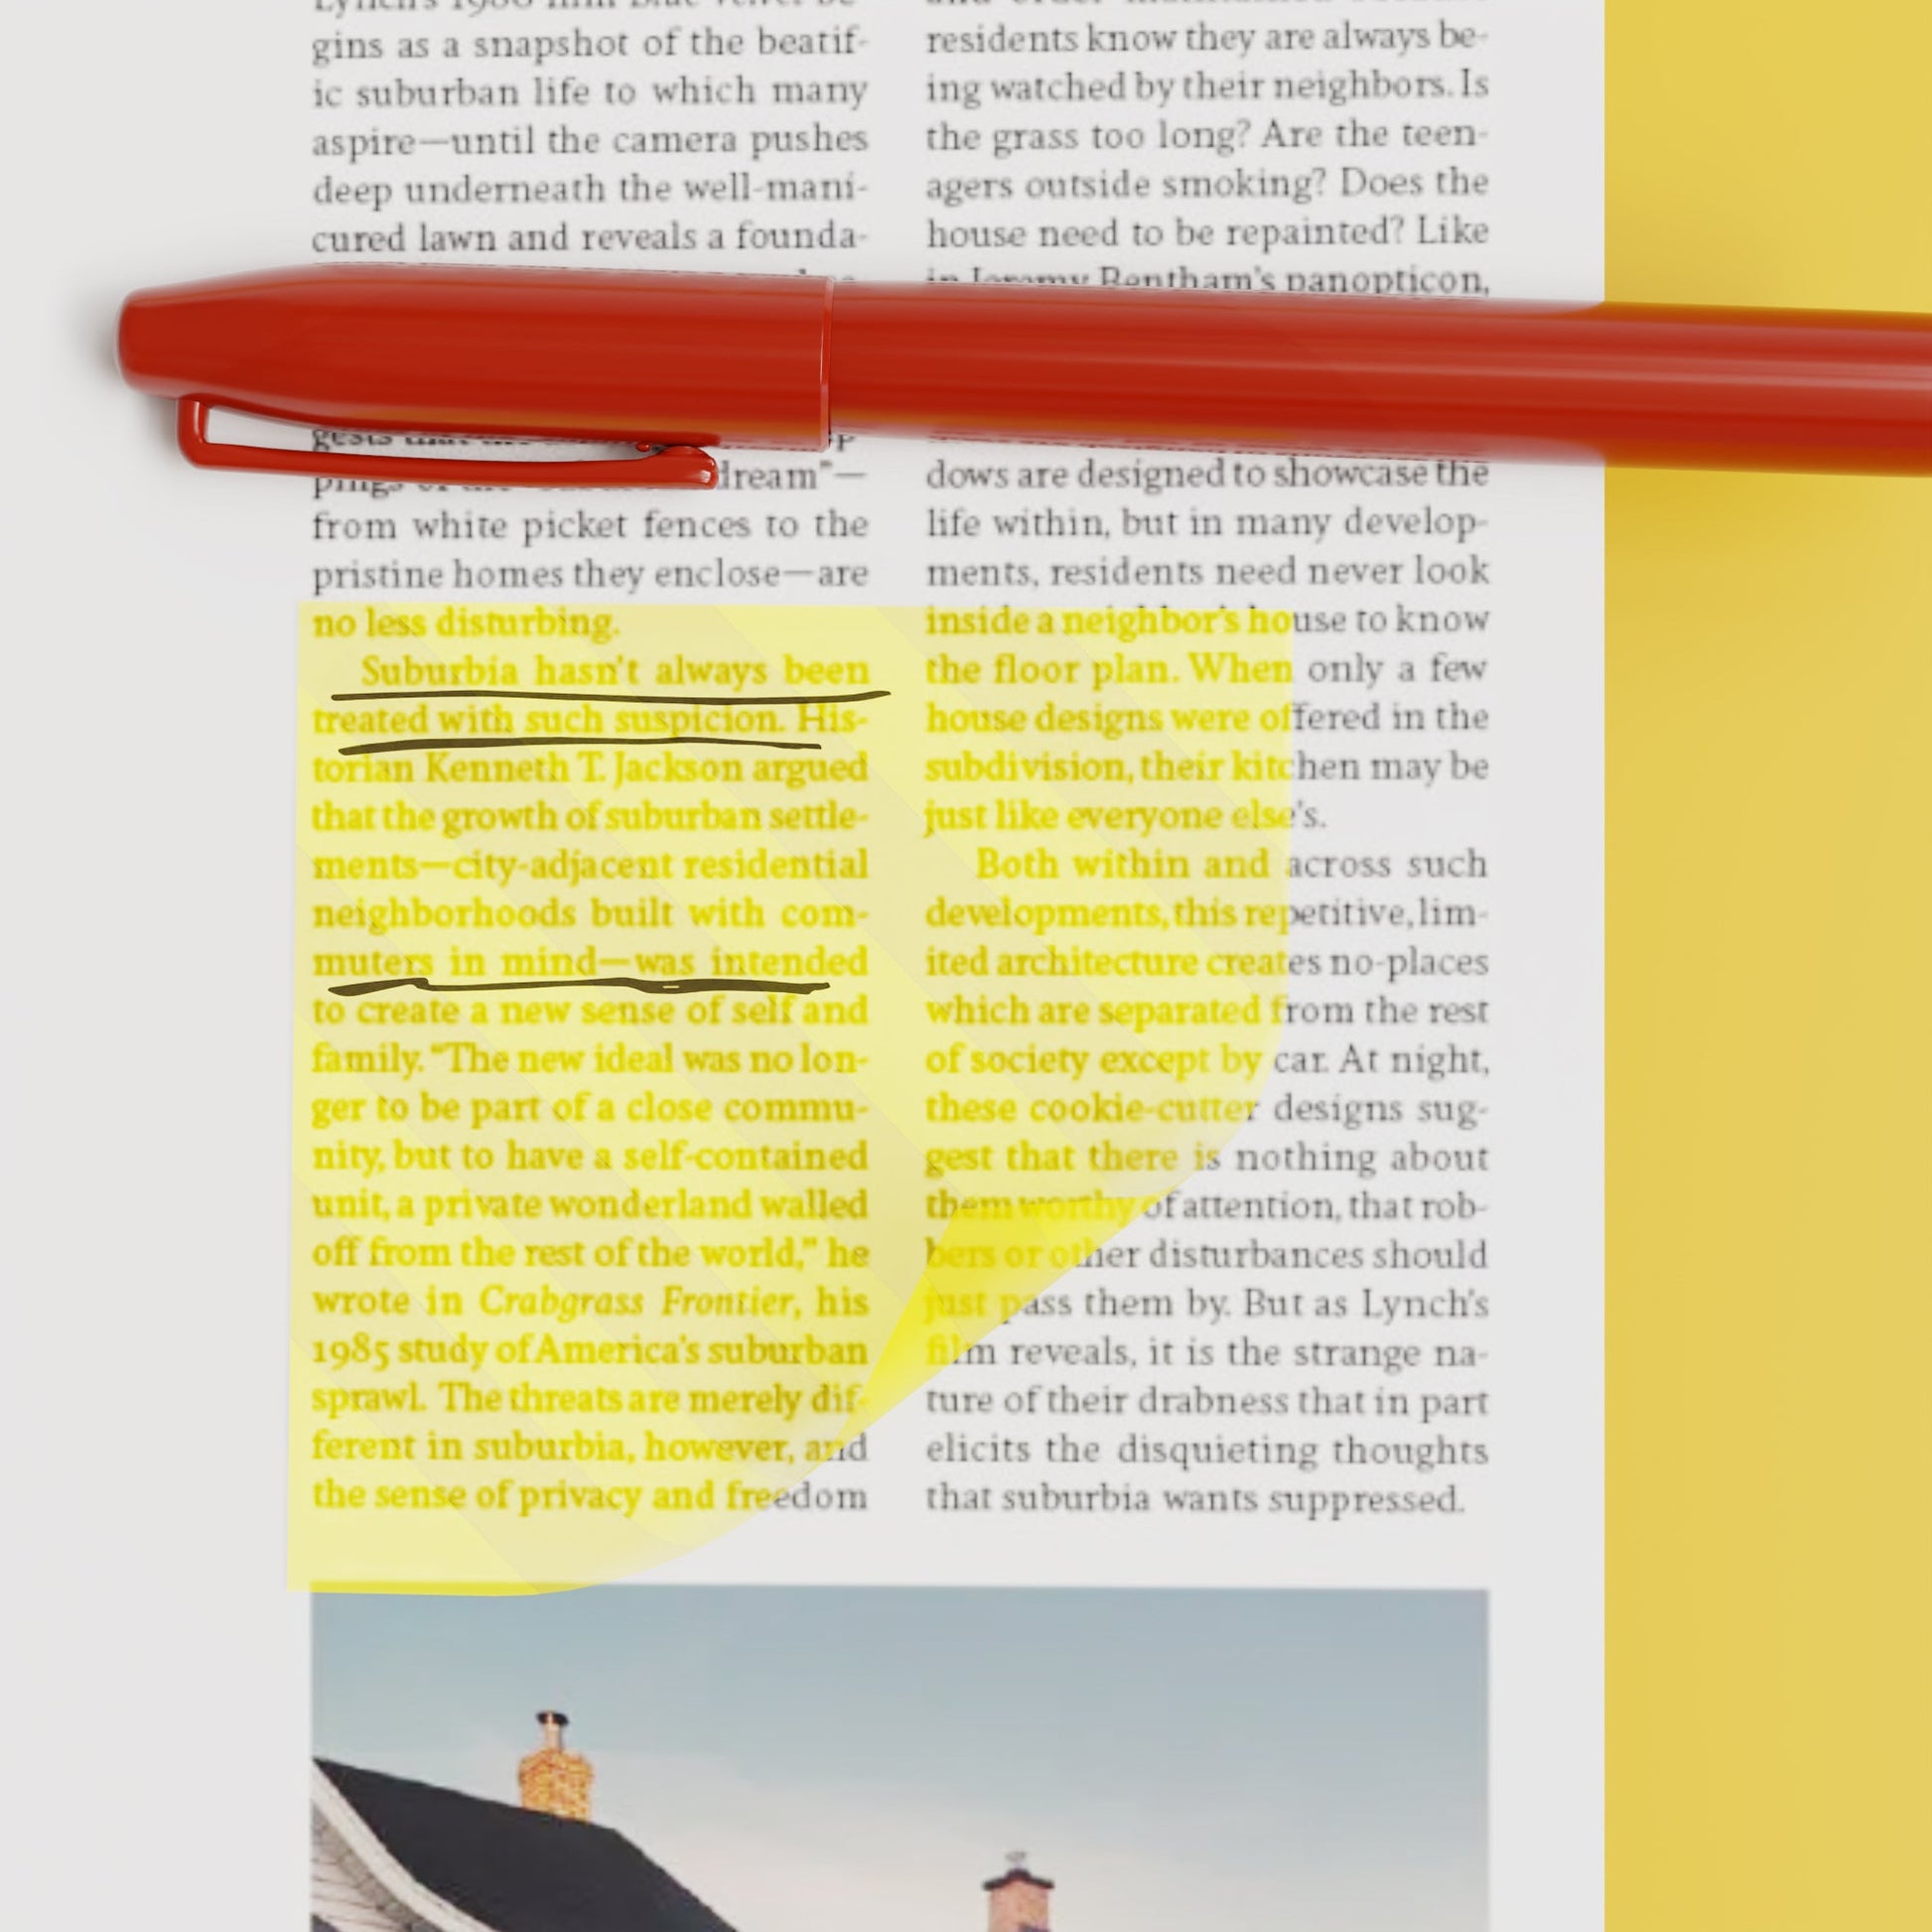 gins as a snapshot of the beatif-
ic suburban life to which many
aspire—until the camera pushes
deep underneath the well-mani-
cured lawn and reveals a founda-
dream”—
from white picket fences to the
pristine homes they enclose—are
no less disturbing.
Suburbia hasn't always been
treated with such suspicion. His-
torian Kenneth T. Jackson argued
that the growth of suburban settle-
ments—city-adjacent residential
neighborhoods built with com-
muters in mind—was intended
to create a new sense of self and
family. “The new ideal was no lon-
ger to be part of a close commu-
nity, but to have a self-contained
unit, a private wonderland walled
off from the rest of the world,” he
wrote in Crabgrass Frontier, his
1985 study of America's suburban
sprawl. The threats are merely dif-
ferent in suburbia, however, and
the sense of privacy and freedom
residents know they are always be-
ing watched by their neighbors. Is
the grass too long? Are the teen-
agers outside smoking? Does the
house need to be repainted? Like
in Jeremy Bentham's panopticon,
dows are designed to showcase the
life within, but in many develop-
ments, residents need never look
inside a neighbor's house to know
the floor plan. When only a few
house designs were offered in the
subdivision, their kitchen may be
just like everyone else's.
Both within and across such
developments, this repetitive, lim-
ited architecture creates no-places
which are separated from the rest
of society except by car. At night,
these cookie-cutter designs sug-
gest that there is nothing about
them worthy of attention, that rob-
bers or other disturbances should
just pass them by. But as Lynch's
film reveals, it is the strange na-
ture of their drabness that in part
elicits the disquieting thoughts
that suburbia wants suppressed.